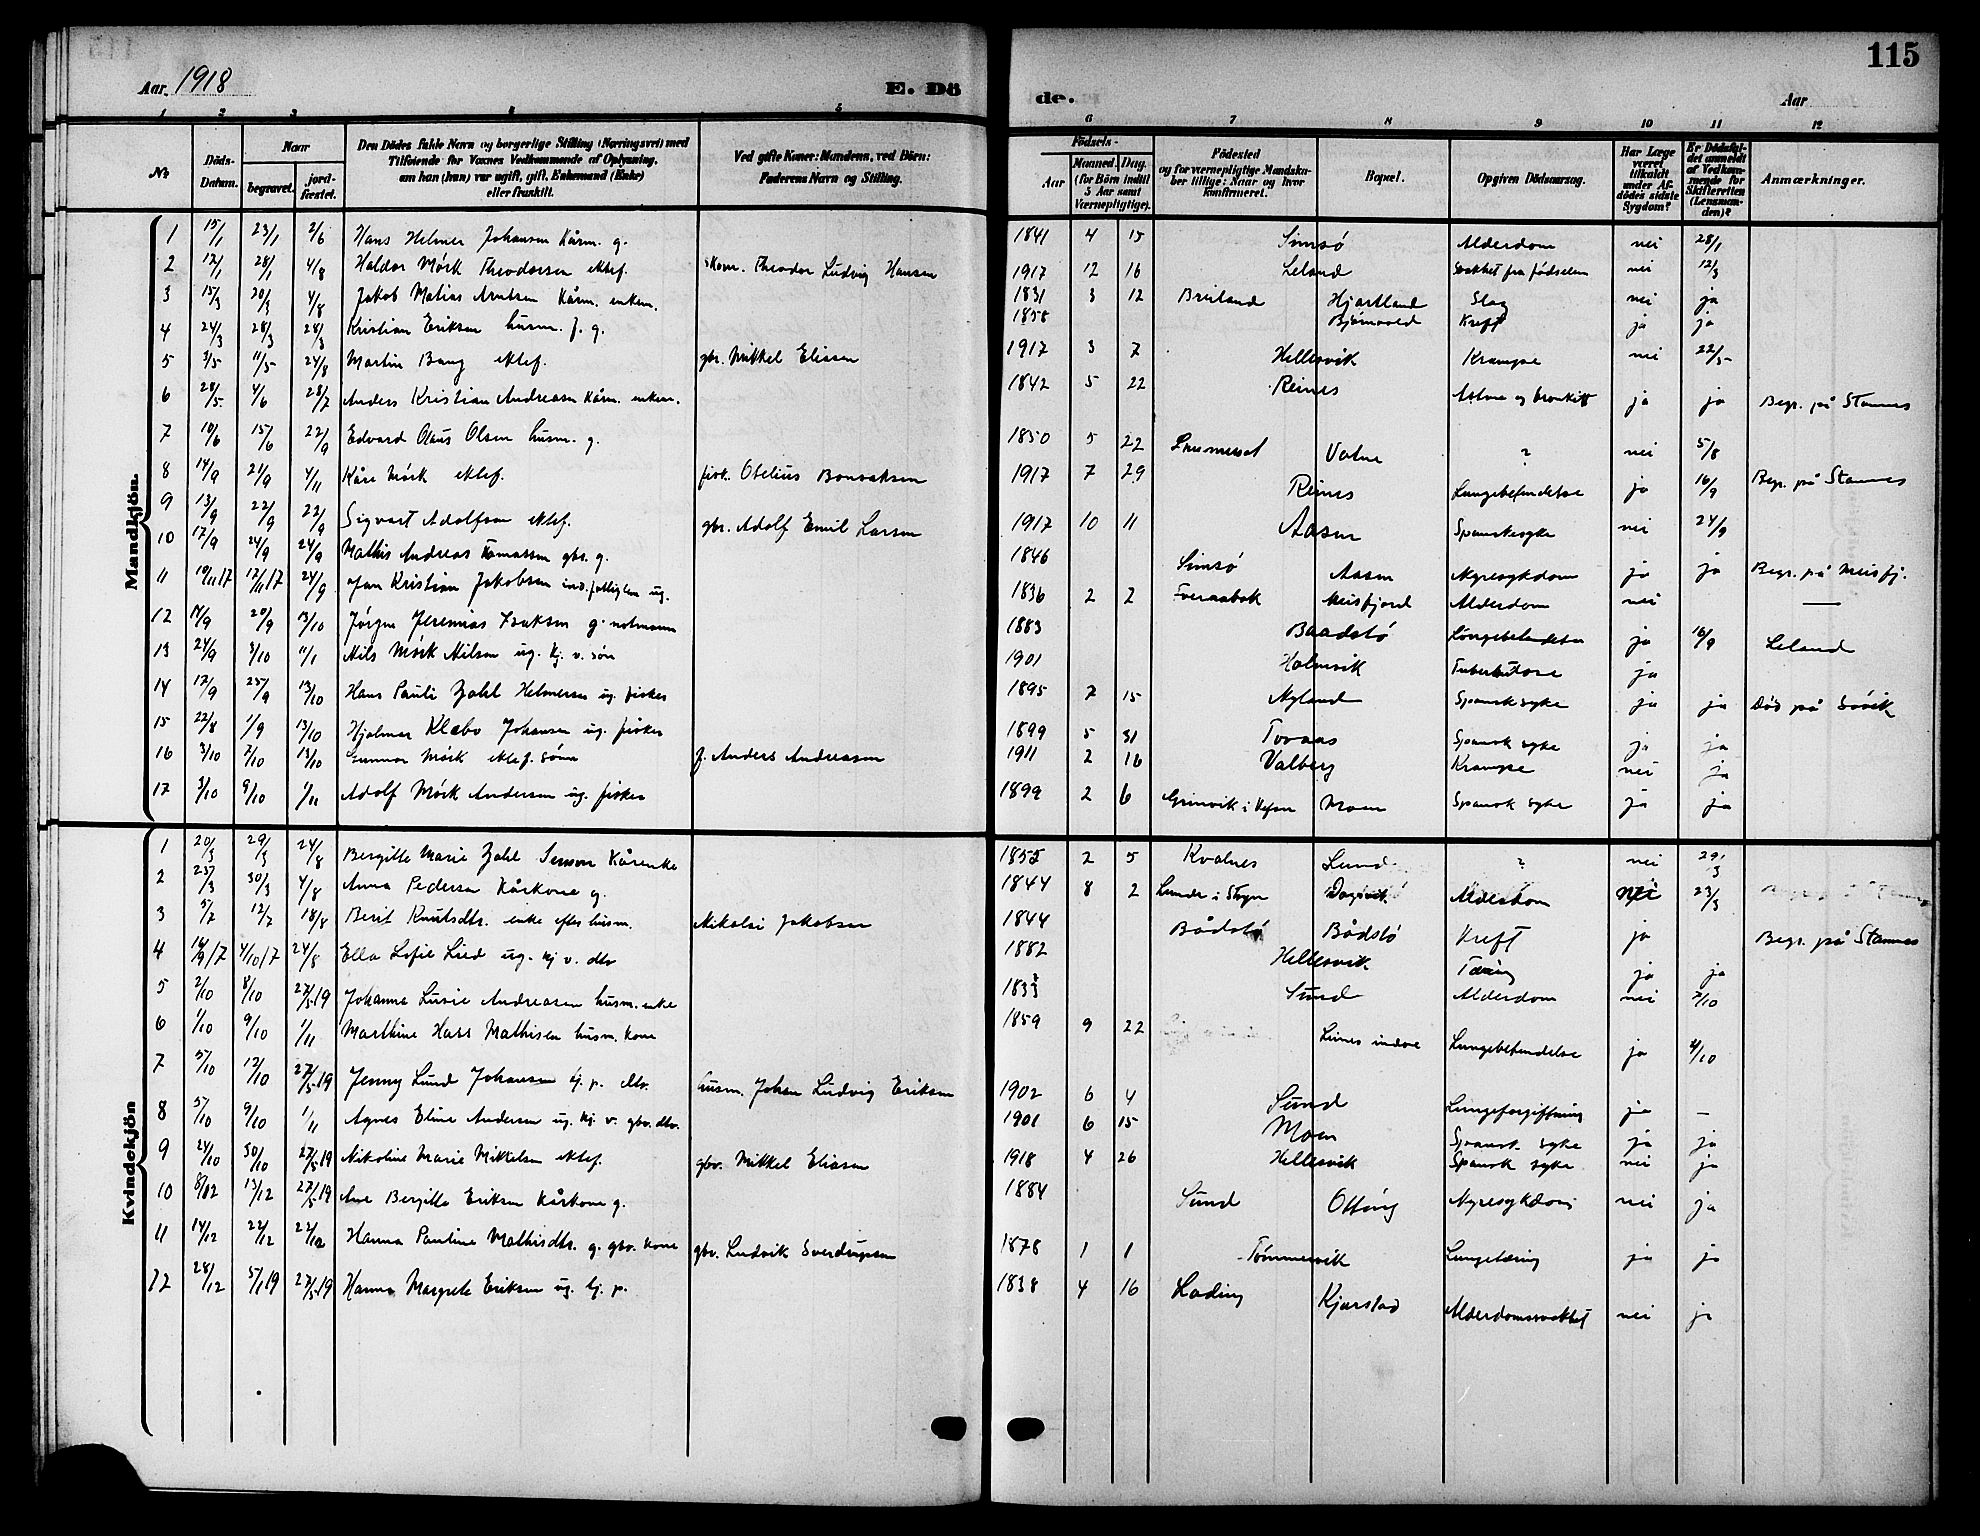 115
Aar. 1918
E. Dö
de.
Aar
1 2 3 4 5
6 7 8 9 10 11 12
No.
Döds-Datum.
Naar
begravet.
jordfæstet.
Den Dödes fulde Navn og borgerlige Stilling (Næringsvei) med Tilföiende for Voxnes Vedkommende af Oplysning, om han (hun) var ugift, gift, Enkemand (Enke) eller fraskilt.
Ved gifte Koner: Mandens, ved Börn: Faderens Navn og Stilling.
Födsels-
Aar
Maaned. Dag.
(for Börn indtil 5 Aar samt Værnepligtige).
Födested
og for værnepligtige Mandskaber tillige: Naar og hvor konfirmeret.
Bopæl.
Opgiven Dödsaarsag.
Har Læge været tilkaldt under Afdödes sidste Sygdom?
Er Dödsfaldet anmeldt af Vedkommende for Skifteretten (Lensmanden)?
Anmærkninger.
Mandkjön.
1 15/1 23/1 2/6 Hans Helmer Johansen Kårm. g. 1841 4 15 Simsö Alderdom nei 28/1
2 12/1 28/1 4/8 Haldor Mörk Theodorsen ektef. Theodor Ludvig Hansen 1917 12 16 Leland Svakhet fra födselen nei 12/3
3 15/3 20/3 4/8 Jakob Matias Arntsen Kårm. enkem. 1831 3 12 Breiland Hjartland Slag nei ja
4 24/3 28/3 28/3 Kristian Eriksen husm. f. g. 1858 Kreft ja ja
5 3/5 11/5 24/8 Martin Bang ektef. gbr. Mikkel Eliasen 1917 3 7 Hellesvik Krampe nei 22/5
6 28/5 4/6 28/7 Anders Kristian Andreasen Kårm. enkem. 1842 5 22 Reines Astma og bronkitt ja ja Begr. på Stamnes
7 10/6 15/6 22/9 Edvard Olaus Olsen husm. g. 1850 5 22 Vatne ? nei 5/8
8 14/9 21/9 4/11 Kåre Mörk ektef. fisk. Otelius Bonsaksen 1917 7 29 Reines Lungebetendelse ja 16/9 Begr. på Stamnes
9 13/9 22/9 22/9 Sigvart Adolfsen ektef. gbr. Adolf Emil Larsen 1917 10 11 Aasen Spanskesyke nei 24/9
10 17/9 24/9 24/9 Mathis Andreas Tomassen gbr. g. 1846 Simsö Aasen Nyresykdom ja ja Begr. på Meisfj.
11 10/11 17 12/11 17 24/9 Jan Kristian Jakobsen ind. fattiglem ug. 1836 2 2 Tveraabak Meisfjord Alderdom nei —
12 14/9 20/9 13/10 Jörgen Jeremias Isaksen g. notmann 1883 Baadstö Lungebetendelse ja 16/9 Leland
13 24/9 3/10 11/1 Nils Mörk Nilsen ug. kj. v. sön 1901 Holmvik Tuberkulose ja
14 12/9 25/9 13/10 Hans Pauli Zahl Helmersen ug. fisker 1895 7 15 Nyland Spansk syke ja ja Död på Sövik
15 22/8 1/9 13/10 Hjalmar Klæbo Johansen ug. fisker 1899 5 31 Tovaas Spansk syke ja ja
16 3/10 7/10 13/10 Gunnar Mörk ektef. sön f. Anders Andreasen 1911 2 16 Valberg Krampe nei ja
17 3/10 9/10 1/11 Adolf Mörk Andersen ug. fisker 1899 2 6 Grinvik i Vefsn Moen Spansk syke ja ja
Kvindekjön
1 20/3 29/3 24/8 Bergitte Marie Zahl Kårenke 1855 2 5 Kvalnes Lund ? nei 29/3
2 23/3 30/3 4/8 Anna Pedersen Kårkone g. 1844 8 2 Dagsvik Alderdom nei 23/3
3 5/7 12/7 18/8 Berit Knutsdtr. enke efter husm. Nikolai Jakobsen 1844 Bådstö Bådstö Kreft ja Begr. på Stamnes
4 14/9 17 4/10 17 24/8 Ella Sofie Lied ug. kj. v. dtr 1882 Hellesvik Tæring ja ja
5 2/10 8/10 27/5 19 Johanna Lusie Andreasen husm. enke 1833 Sund Alderdom nei 7/10
6 1/10 9/10 1/11 Marthine Hass Mathisen husm. kone 1859 9 22 Leines indre Lungebetendelse ja 4/10
7 5/10 12/10 27/5 19 Jenny Lund Johansen kj. p. dtr. husm. Johan Ludvig Eriksen 1902 6 4 Sund Lungeforgiftning ja —
8 5/10 9/10 1/11 Agnes Eline Andersen ug. kj. v. gbr. dtr. 1901 6 15 Moen Spansk syke ja ja
9 24/10 30/10 27/5 19 Nikoline Marie Mikkelsen ektef. gbr. Mikkel Eliasen 1918 4 26 Hellesvik Spansk syke nei ja
10 8/12 13/12 27/5 19 Ane Bergitte Eriksen Kårkone g. 1884 Sund Otting Nyresykdom nei ja
11 14/12 22/12 22/12 Hanna Pauline Mathisdtr. g. gbr. kone gbr. Ludvik Sverdrupsen 1878 1 1 Tömmervik Lungetæring ja ja
12 28/12 5/1 19 27/5 19 Hanna Margrete Eriksen ug. kj. p. 1838 4 16 Lading Kjerstad Alderdomssvakhet nei ja